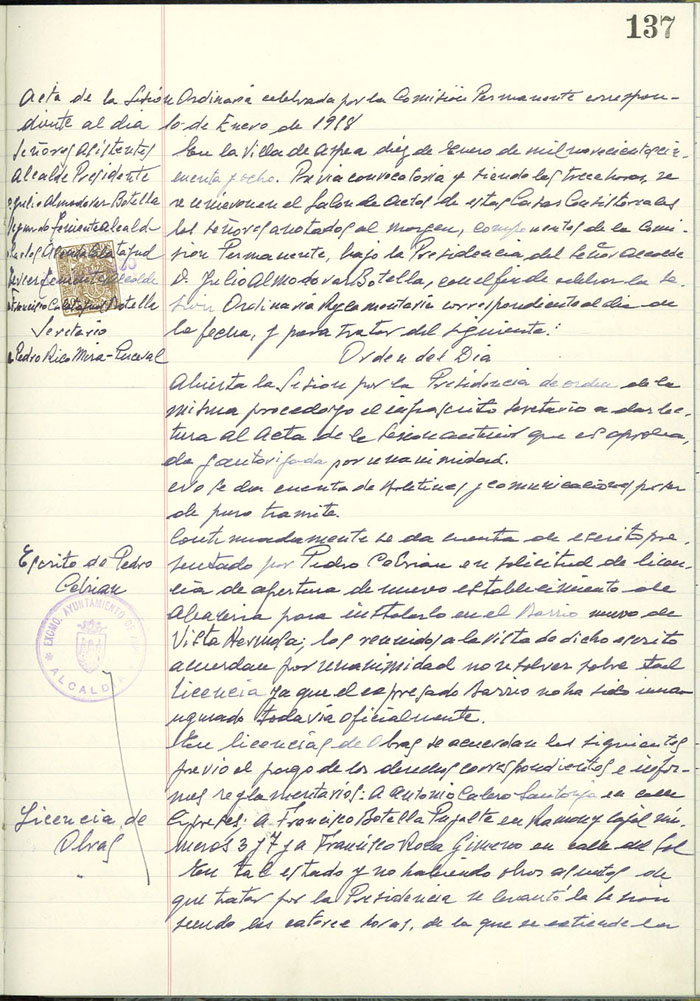 137
Acta de la Sesión Ordinaria celebrada por la Comisión Permanente correspon-
diente al dia 10 de Enero de 1958
Señores Asistentes
Alcalde Presidente
D. Julio Almodovar Botella
Segundo Teniente Alcalde
Carlos Alenda Calatayud
Tercer Teniente Alcalde
Francisco Calatayud Botella
Secretario
D. Pedro Rico Mira-Perceval
En la Villa de Aspe a diez de Enero de mil novecientos cin-
cuenta y ocho. Previa convocatoria y siendo las trece horas, se
reunieron en el Salon de Actos de estas Casas Consistoriales
los señores anotados al margen, componentes de la Comi-
sion Permanente, bajo la Presidencia del Señor Alcalde
D. Julio Almodovar Botella, con el fin de celebrar la Se-
sión Ordinaria Reglamentaria correspondiente al dia de
la fecha, y para tratar del siguiente:
Orden del Dia
Abierta la Sesion por la Presidencia de orden de la
misma procedo yo el infrascrito Secretario a dar lec-
tura al Acta de la Sesion anterior que es aproba-
da y autorizada por unanimidad.
No se dan cuenta de Boletines y comunicaciones por ser
de puro tramite.
Continuadamente se da cuenta de escrito pre-
sentado por Pedro Cebrian en solicitud de licen-
cia de apertura de nuevo establecimiento de
Abaceria para instalarlo en el Barrio nuevo de
Vista Hermosa; los reunidos a la vista de dicho escrito
acuerdan por unanimidad no resolver sobre tal
licencia ya que el expresado Barrio no ha sido inau-
gurado todavia oficialmente.
Escrito de Pedro
Cebrian
EXCMO. AYUNTAMIENTO DE
ALCALDIA
En licencias de Obras se acuerdan las siguientes
previo el pago de los derechos correspondientes e infor-
mes reglamentarios: A Antonio Calero Santonja en calle
Cipreses; A Francisco Botella Pujalte en Ramon y Cajal nú-
meros 5 y 7 y a Francisco Roca Gimeno en calle del Sol
Licencia de
Obras
En tal estado y no habiendo otros asuntos de
que tratar por la Presidencia se levantó la Sesion
siendo las catorce horas, de la que se extiende la